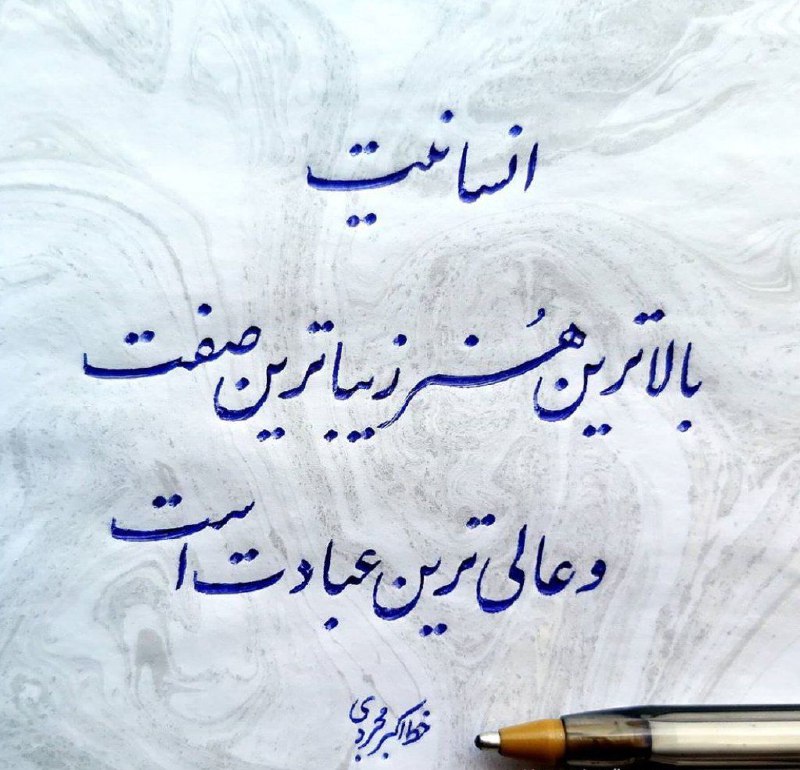 انسانیت
بالاترین هُنر زیباترین صفت
و عالی ترین عبادت است
خط اکبر مجردی